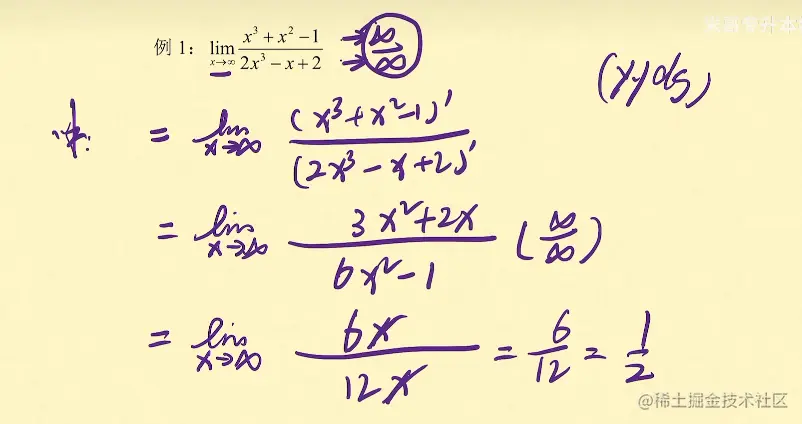 例 1： lim x→∞ (x³+x²−1)/(2x³−x+2) → ∞ → ∞
(yyds)
= lim x→∞ (x³+x²-1)' / (2x³-x+2)'
= lim x→∞ 3x²+2x / 6x²-1 (∞/∞)
= lim x→∞ 6x / 12x = 6/12 = 1/2
@稀土掘金技术社区